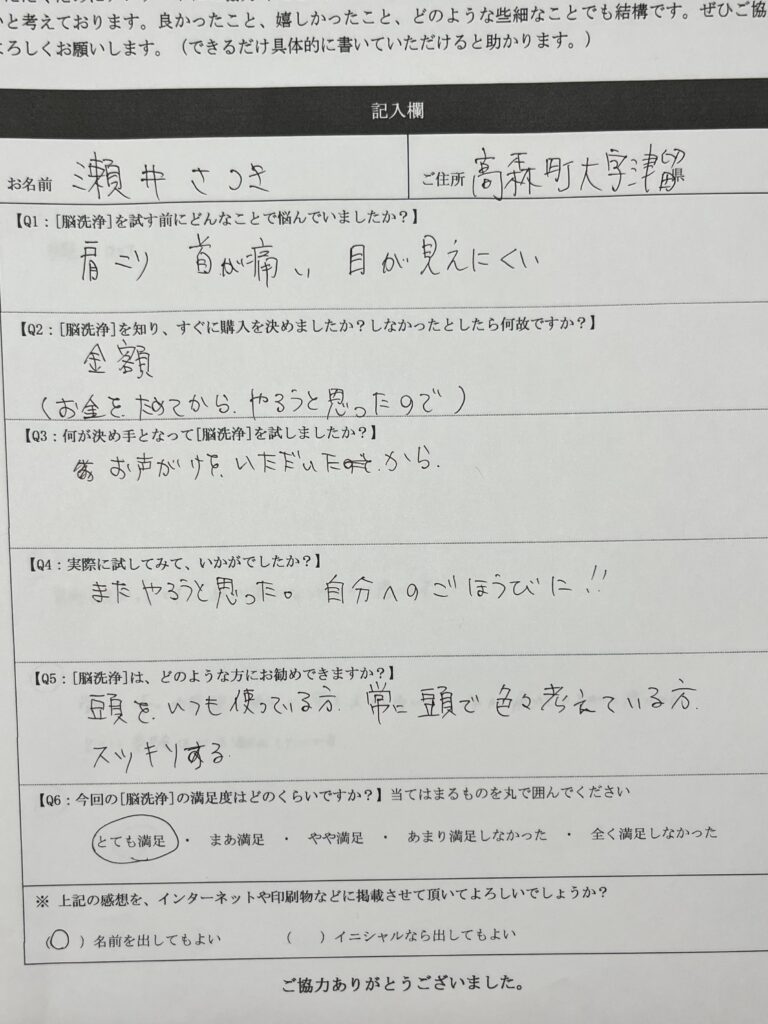 いと考えております。良かったこと、嬉しかったこと、どのような些細なことでも結構です。ぜひご協
よろしくお願いします。（できるだけ具体的に書いていただけると助かります。）
記入欄
お名前 瀬井さつき
ご住所 高森町大字津留 県
【Q1：[脳洗浄]を試す前にどんなことで悩んでいましたか？】
肩こり 首が痛い 目が見えにくい
【Q2：[脳洗浄]を知り、すぐに購入を決めましたか？しなかったとしたら何故ですか？】
金額
（お金を、ためてから、やろうと思ったので）
【Q3：何が決め手となって[脳洗浄]を試しましたか？】
お声がけを、いただいたから。
【Q4：実際に試してみて、いかがでしたか？】
またやろうと思った。自分へのごほうびに!!
【Q5：[脳洗浄]は、どのような方にお勧めできますか？】
頭を、いつも使っている方、常に頭で色々考えている方、
スッキリする。
【Q6：今回の[脳洗浄]の満足度はどのくらいですか？】当てはまるものを丸で囲んでください
とても満足 ・ まあ満足 ・ やや満足 ・ あまり満足しなかった ・ 全く満足しなかった
※ 上記の感想を、インターネットや印刷物などに掲載させて頂いてよろしいでしょうか？
（○）名前を出してもよい （ ）イニシャルなら出してもよい
ご協力ありがとうございました。